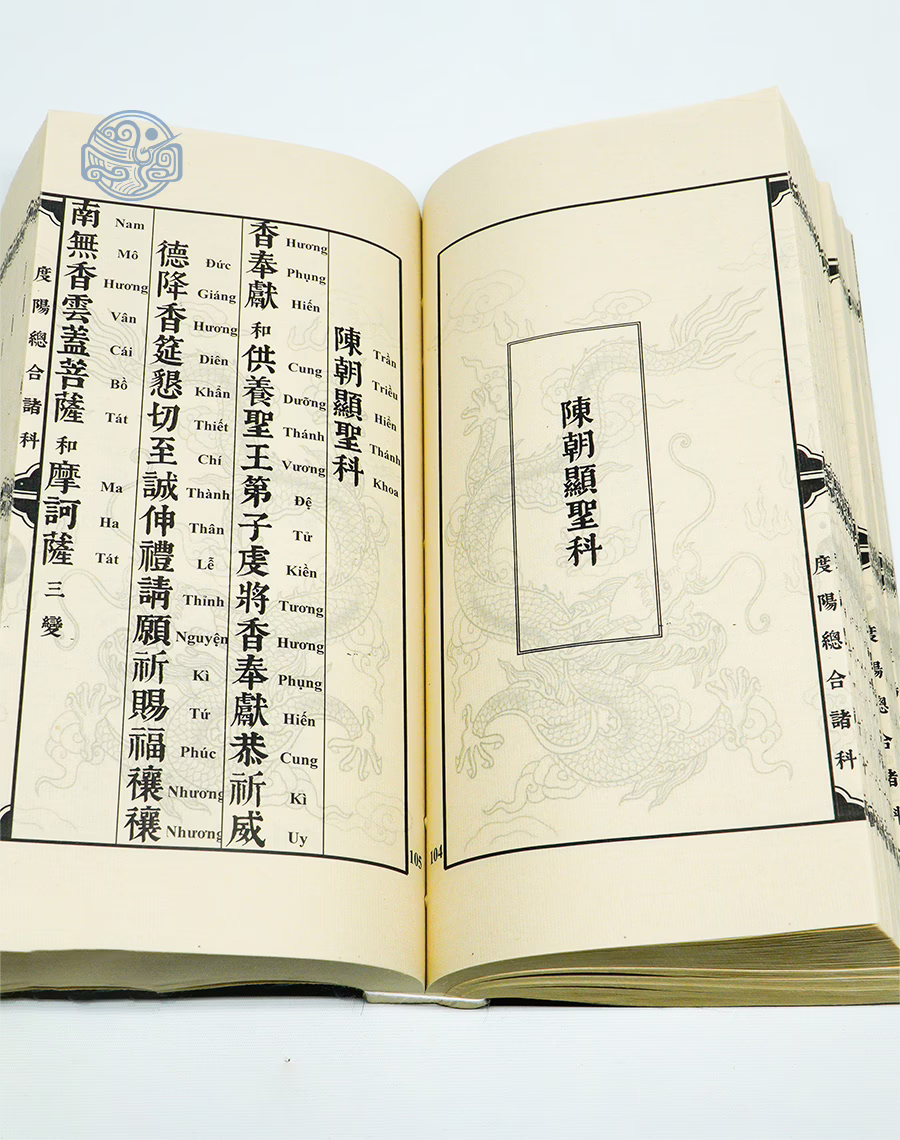 陳朝顯聖科
度陽總合諸科
104
陳朝顯聖科
Trần Triều Hiển Thánh Khoa
香奉獻和供養聖王第子虔將香奉獻恭祈威
Hương Phụng Hiến Cung Dưỡng Thánh Vương Đệ Tử Kiền Tương Hương Phụng Hiến Cung Kì Uy
德降香筵懇切至誠伸禮請願祈賜福禳禳
Đức Giáng Hương Diên Khẩn Thiết Chí Thành Thân Lễ Thỉnh Nguyện Kì Tứ Phúc Nhương Nhương
南無香雲蓋菩薩和摩訶薩三變
Nam Mô Hương Vân Cái Bồ Tát Ma Ha Tát
度陽總合諸科
105